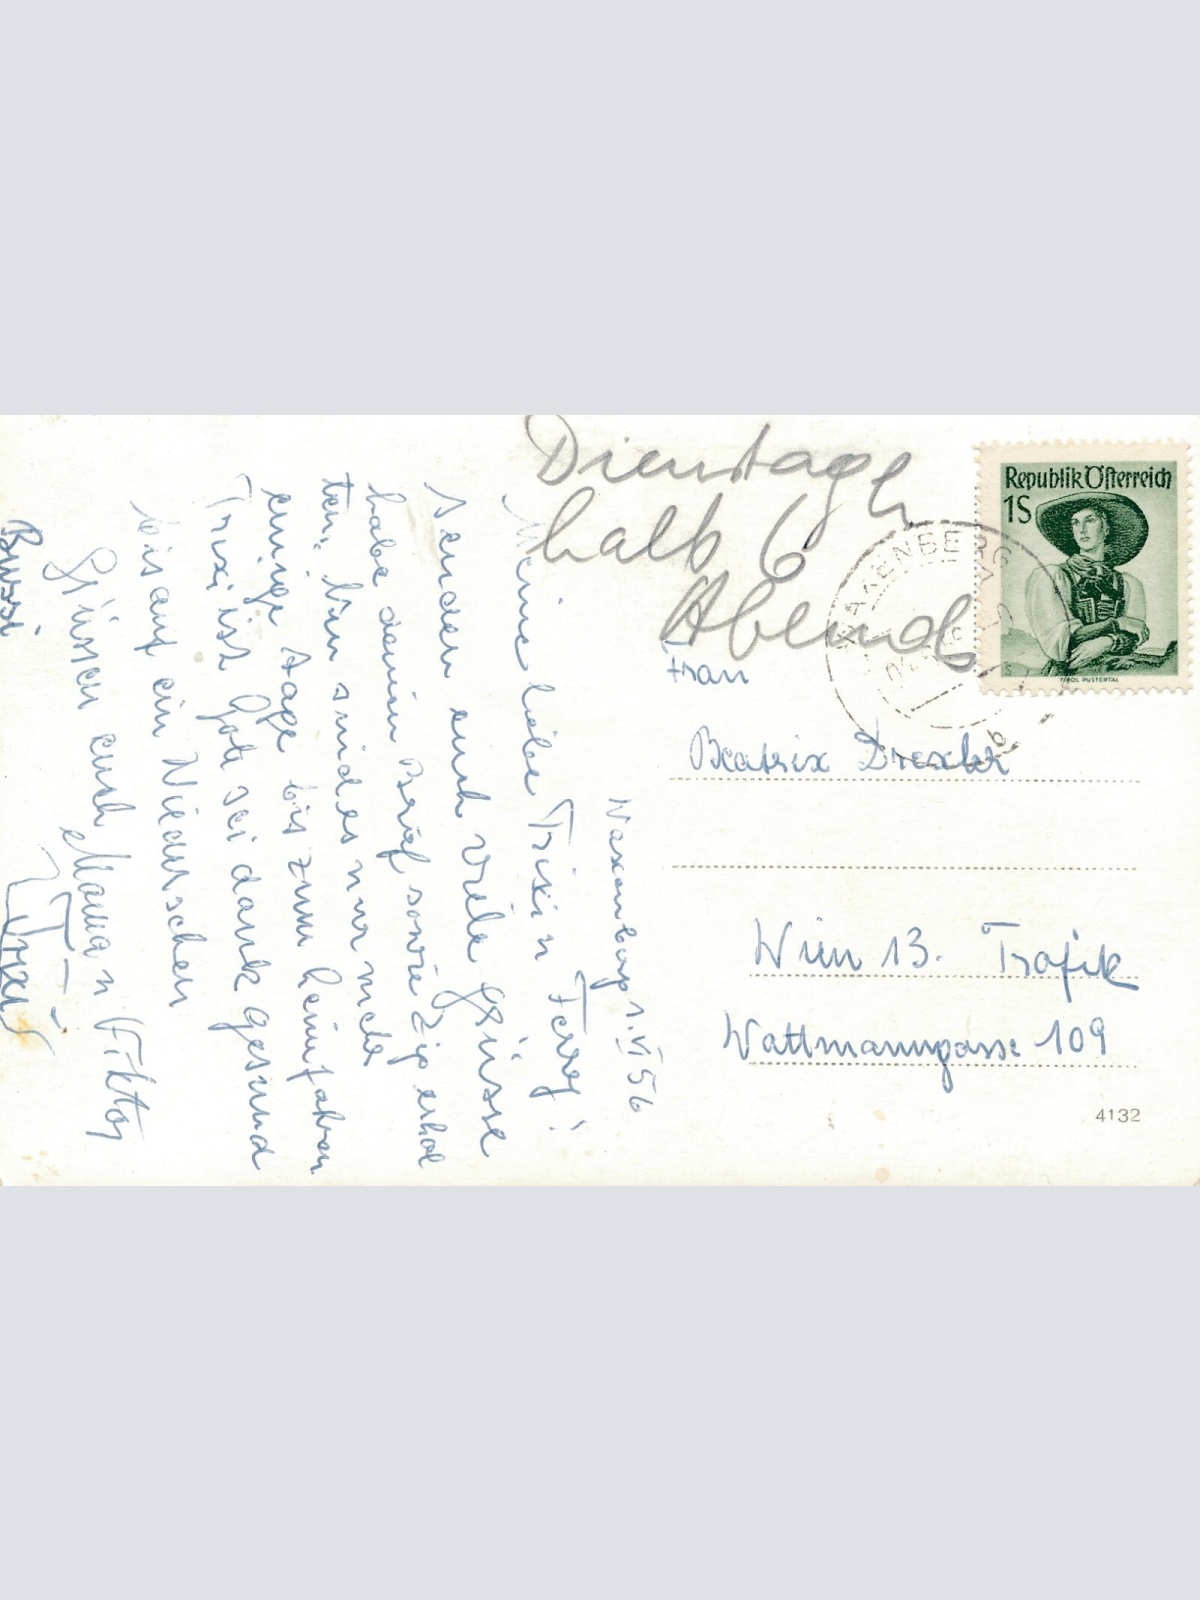 Waxenberg 1.VI 56
Meine liebe Trixi u Ferry!
Senden euch viele Grüsse
habe deinen Brief sowie Zip erhal
ten, bin sind es nur mehr
einige Tage bis zum heimfahren
Trixi ist Gott sei dank gesund
bis auf ein
Grüssen euch Mama u Viktor
Bussi Trixi
Dienstag
halb 6
Abend
Republik Österreich
1S
TIROL PUSTERTAL
Frau
Beatrix Drexler
Wien 13. Trafik
Wattmanngasse 109
4132